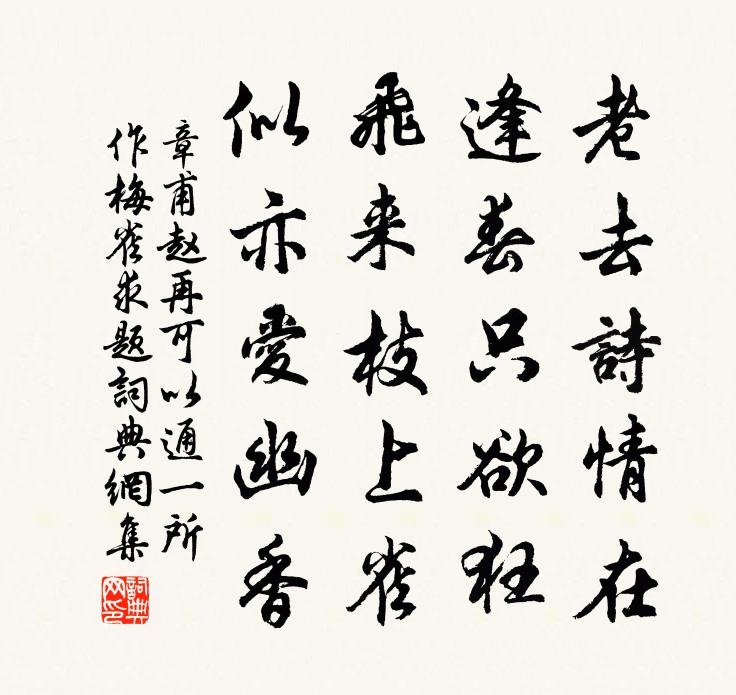 老去詩情在
逢春只欲狂
飛来枝上雀
似亦愛幽香
章甫赵再可以通一所
作梅雀求题詞典網集
詞典网印